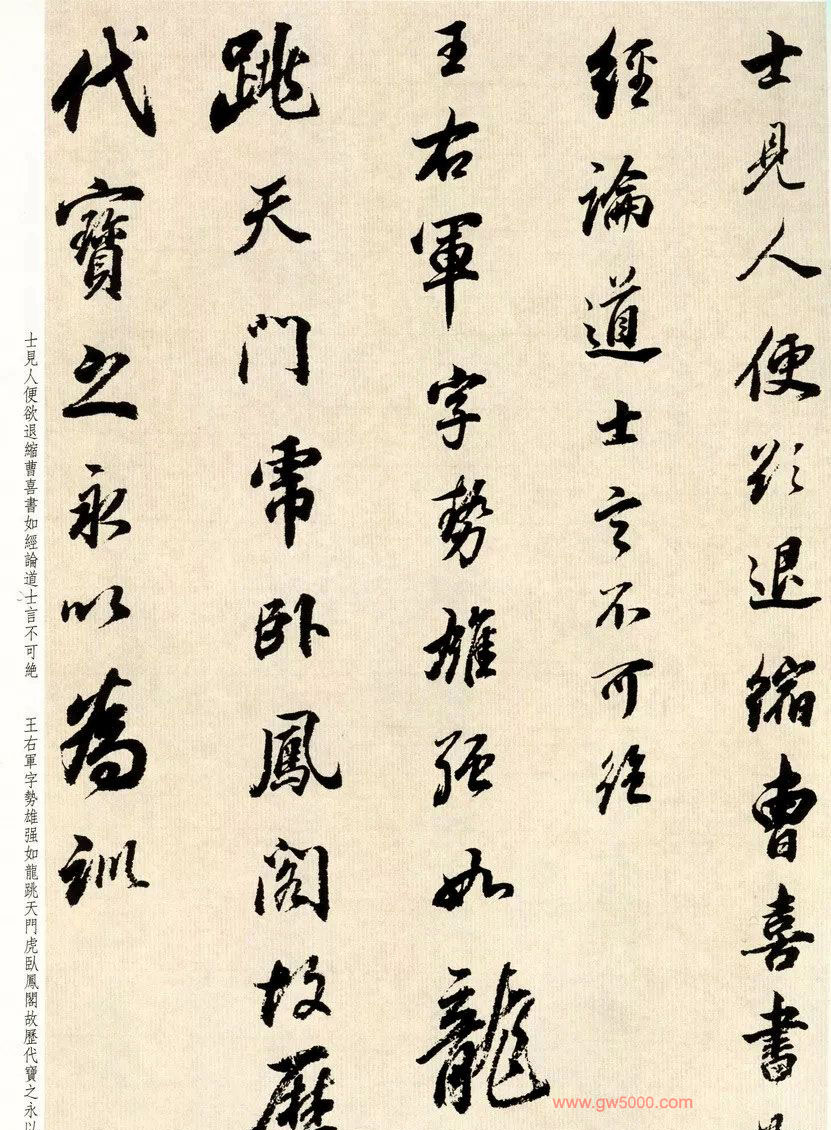 士見人便欲退縮曹喜書
經論道士言不可絶
王右軍字勢雄强如龍
跳天門虎卧鳳閣故歷
代寶之永以為訓
士見人便欲退縮曹喜書如經論道士言不可絶　王右軍字勢雄强如龍跳天門虎卧鳳閣故歷代寶之永以
www.gw5000.com